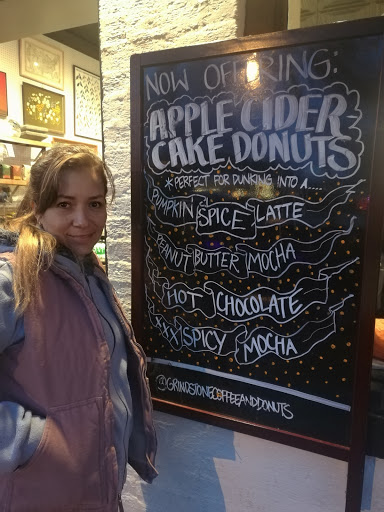 NOW OFFERING:
APPLE CIDER
CAKE DONUTS
*PERFECT FOR DUNKING INTO A....
PUMPKIN SPICE LATTE
PEANUT BUTTER MOCHA
HOT CHOCOLATE
XXX SPICY MOCHA
@GRINDSTONECOFFEEANDDONUTS